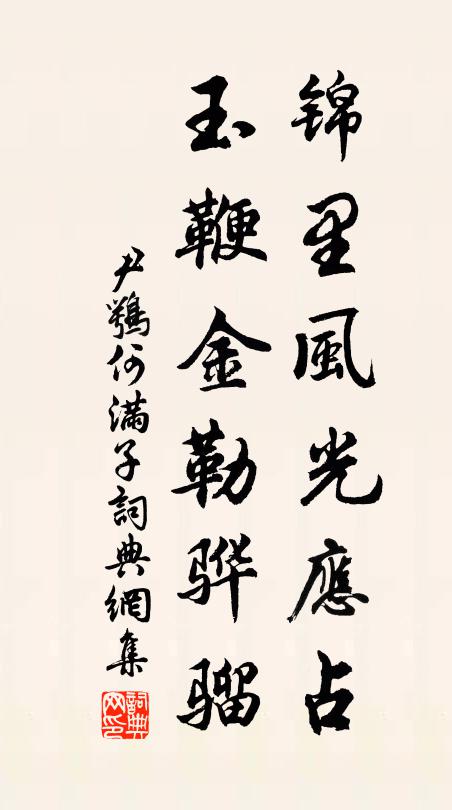 锦里風光應占
玉鞭金勒骅骝
尹鶚何满子詞典網集
詞典网印